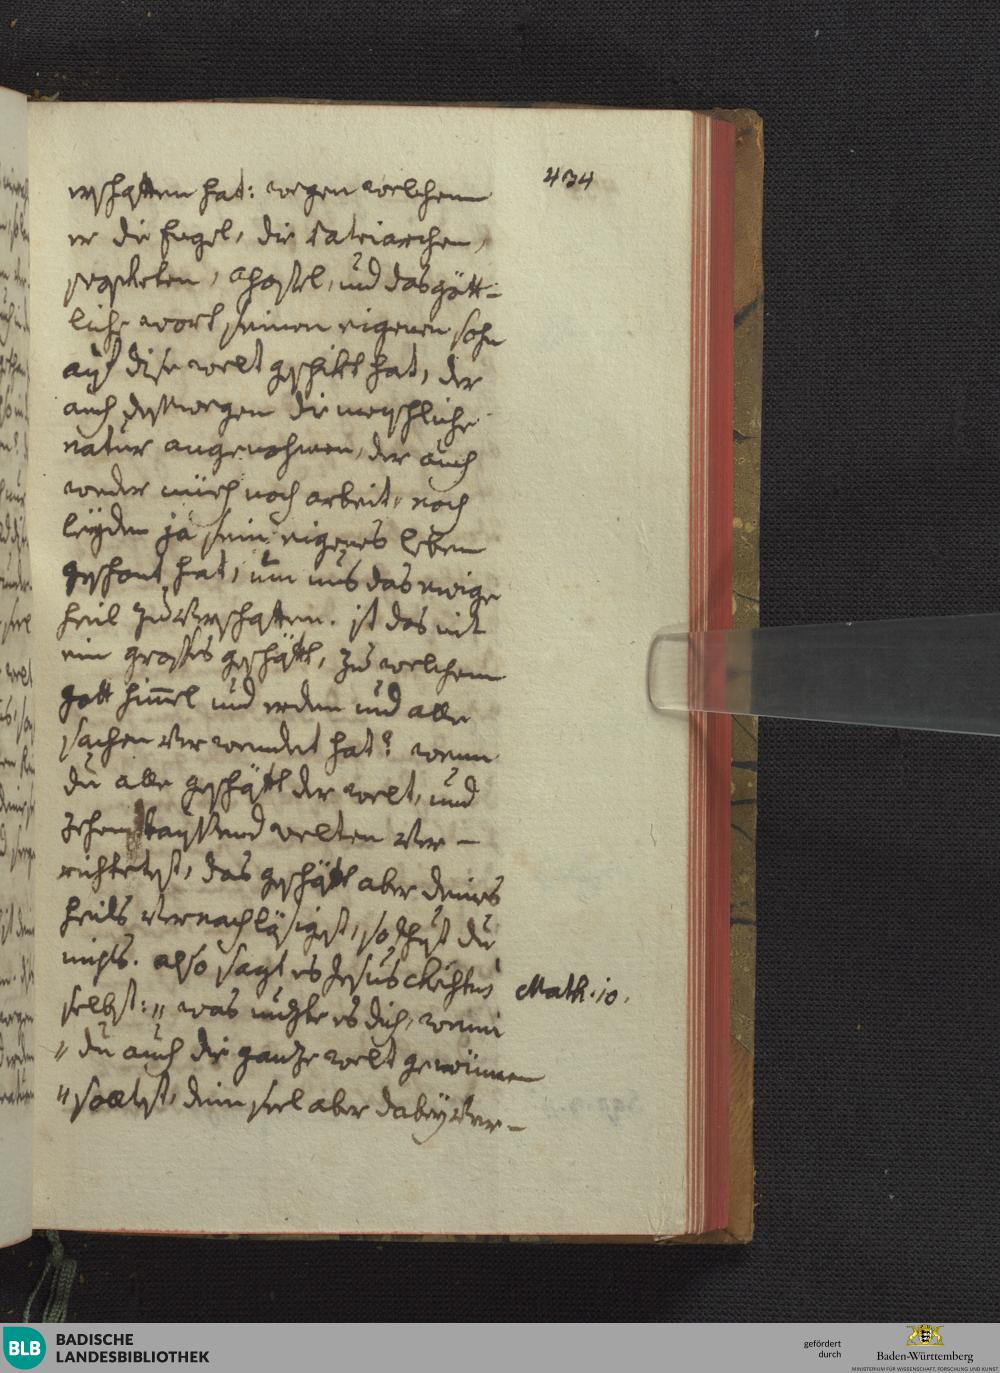 434
erschaffen hat: wegen welchem
er die Engel, die Patriarchen,
propheten, Apostel, und das gött-
liche wort seinen eigenen sohn
auf dise welt geschikt hat, der
auch desswegen die menschliche
natur angenohmen, der auch
weder müeh noch arbeit, noch
leyden ja sein eigenes leben
geschont hat, um uns das ewige
heil zu verschaffen. ist das nit
ein grosses geschäft, zu welchem
gott himmel und erden und alle
sachen verwendet hat? wenn
du alle geschäft der welt, und
zehen taussend welten ver-
richtetest, das geschäft aber deines
heils vernachläsigest, so thust du
nichts. also sagt es Jesus Christus
Math. 10.
selbst: „ was nuzte es dich, wenn
„ du auch die ganze welt gewinnen
„ soltest, dein seel aber dabey ver-
BLB
BADISCHE
LANDESBIBLIOTHEK
gefördert
durch
Baden-Württemberg
MINISTERIUM FÜR WISSENSCHAFT, FORSCHUNG UND KUNST